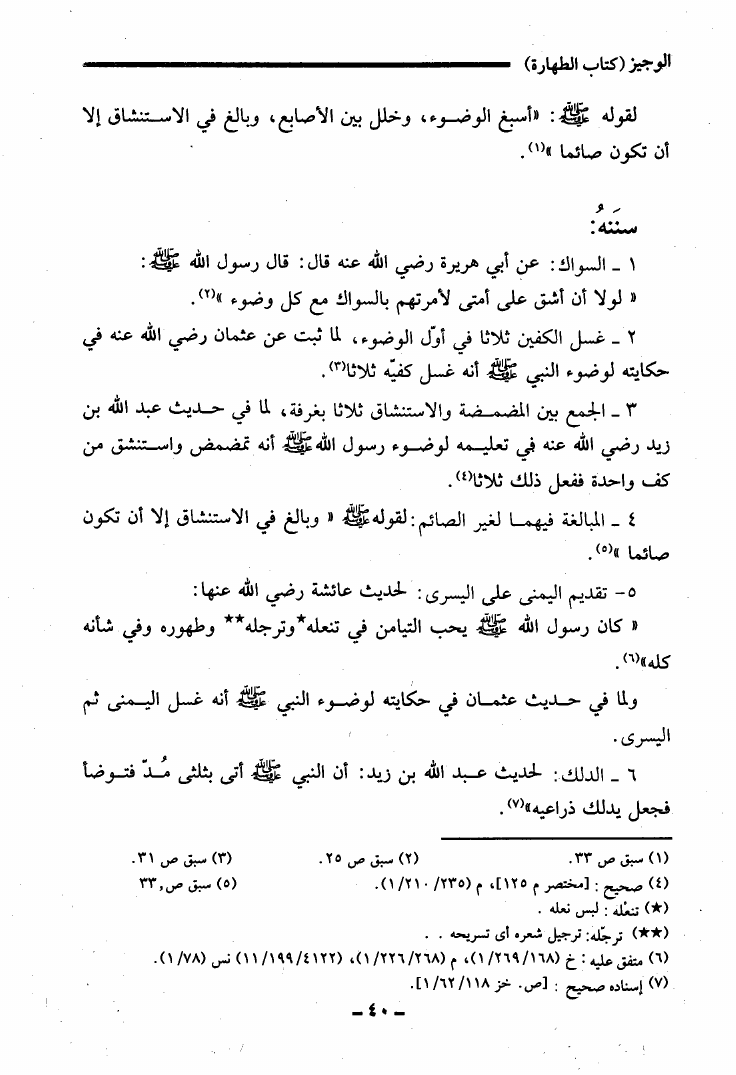 الوجيز (كتاب الطهارة)
لقوله ﷺ: «أسبغ الوضوء، وخلل بين الأصابع، وبالغ في الاستنشاق إلا
أن تكون صائما»(١).
سننَهُ:
١ ـ السواك: عن أبي هريرة رضي الله عنه قال: قال رسول الله ﷺ:
« لولا أن أشق على أمتى لأمرتهم بالسواك مع كل وضوء »(٢).
٢ ـ غسل الكفين ثلاثا في أوّل الوضوء، لما ثبت عن عثمان رضي الله عنه في
حكايته لوضوء النبي ﷺ أنه غسل كفيّه ثلاثا(٣).
٣ ـ الجمع بين المضمضة والاستنشاق ثلاثا بغرفة، لما في حديث عبد الله بن
زيد رضي الله عنه في تعليمه لوضوء رسول الله ﷺ أنه تمضمض واستنشق من
كف واحدة ففعل ذلك ثلاثا(٤).
٤ ـ المبالغة فيهما لغير الصائم: لقوله ﷺ « وبالغ في الاستنشاق إلا أن تكون
صائما »(٥).
٥- تقديم اليمنى على اليسرى: لحديث عائشة رضي الله عنها:
« كان رسول الله ﷺ يحب التيامن في تنعله* وترجله** وطهوره وفي شأنه
كله»(٦).
ولما في حديث عثمان في حكايته لوضوء النبي ﷺ أنه غسل اليمنى ثم
اليسرى.
٦ ـ الدلك: لحديث عبد الله بن زيد: أن النبي ﷺ أتى بثلثى مُدّ فتوضأ
فجعل يدلك ذراعيه»(٧).
(١) سبق ص ٣٣. (٢) سبق ص ٢٥. (٣) سبق ص ٣١.
(٤) صحيح: [مختصر م ١٢٥]، م (٢٣٥/ ٢١٠/ ١). (٥) سبق ص, ٣٣
(★) تنعْله: لبس نعله .
(★★) ترجّله: ترجيل شعره أى تسريحه . .
(٦) متفق عليه: خ (١٦٨/ ٢٦٩/ ١)، م (٢٦٨/ ٢٢٦/ ١)، (٤١٢٢/ ١٩٩/ ١١) نس (٧٨/ ١).
(٧) إسناده صحيح: [ص. خز ١١٨/ ٦٢/ ١].
ـ ٤٠ ـ